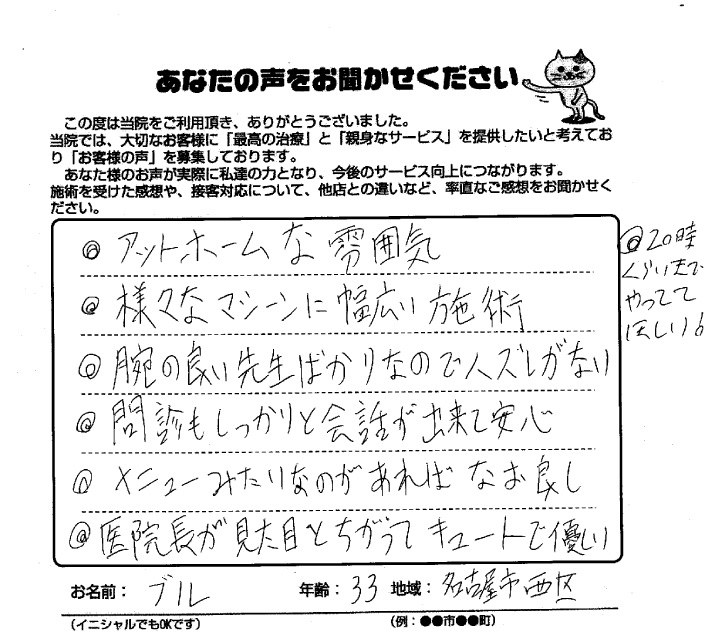 あなたの声をお聞かせください
この度は当院をご利用頂き、ありがとうございました。
当院では、大切なお客様に「最高の治療」と「親身なサービス」を提供したいと考えてお
り「お客様の声」を募集しております。
あなた様のお声が実際に私達の力となり、今後のサービス向上につながります。
施術を受けた感想や、接客対応について、他店との違いなど、率直なご感想をお聞かせく
ださい。
◎ アットホームな雰囲気
◎ 様々なマシーンに幅広い施術
◎ 腕の良い先生ばかりなので人ズレがない
◎ 問診もしっかりと会話が出来て安心
◎ メニューみたいなのがあればなお良し
◎ 医院長が見た目とちがってキュートで優しい
◎ 20時
くらいまで
やってて
ほしい!
お名前: ブル 年齢: 33 地域: 名古屋市西区
(イニシャルでもOKです) (例:●●市●●町)